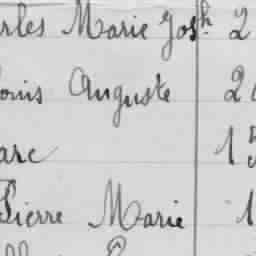 rles Marie Josh 2
ouis Auguste 2
arc 1
Pierre Marie 1